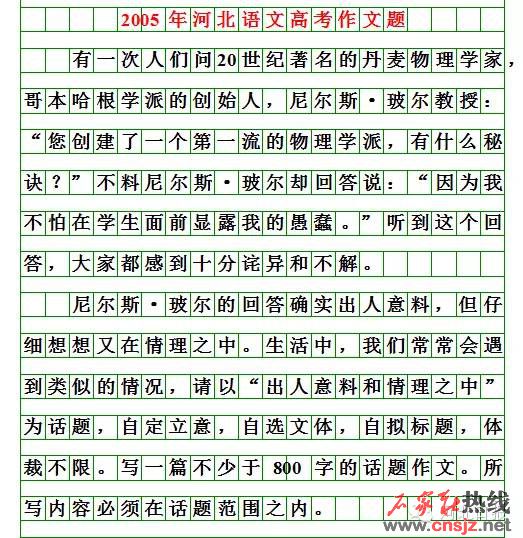 2005年河北语文高考作文题
有一次人们问20世纪著名的丹麦物理学家，
哥本哈根学派的创始人，尼尔斯·玻尔教授：
“您创建了一个第一流的物理学派，有什么秘
诀？”不料尼尔斯·玻尔却回答说：“因为我
不怕在学生面前显露我的愚蠢。”听到这个回
答，大家都感到十分诧异和不解。
尼尔斯·玻尔的回答确实出人意料，但仔
细想想又在情理之中。生活中，我们常常会遇
到类似的情况，请以“出人意料和情理之中”
为话题，自定立意，自选文体，自拟标题，体
裁不限。写一篇不少于 800 字的话题作文。所
写内容必须在话题范围之内。
石家庄热线
www.cnsjz.net